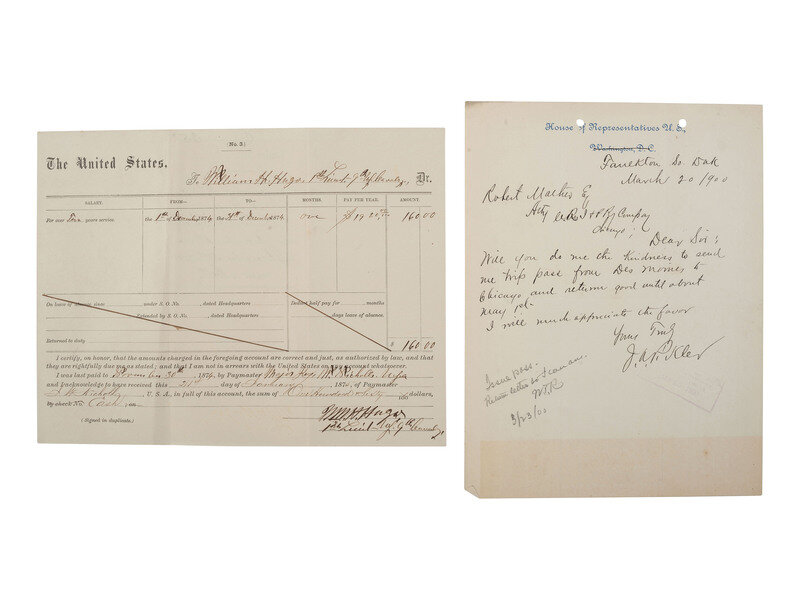 (No. 3)
The United States,
To William H. Hugo, 1st Lieut. 9th Cavalry, Dr.
SALARY. FROM— TO— MONTHS. PAY PER YEAR. AMOUNT.
For over years service. the 1st of December, 1874 the 31st of Decemb, 1874 one 160.00
On leave of absence since under S. O. No. , dated Headquarters Deduct half pay for months
Extended by S. O. No. , dated Headquarters days leave of absence.
Returned to duty $ 160.00
I certify, on honor, that the amounts charged in the foregoing account are correct and just, as authorized by law, and that
they are rightfully due me as stated; and that I am not in arrears with the United States on any account whatsoever.
I was last paid to November 30th 1874, by Paymaster Major
and acknowledge to have received this 31st day of 187 , of Paymaster
U. S. A., in full of this account, the sum of One Hundred Sixty 100 dollars,
By check No. Cash, on
(Signed in duplicate.)
Wm H. Hugo
1st Lieut. 9th Cavalry
House of Representatives U. S.,
Washington, D. C.
Faulkton So Dak
March 20/900
Robert Mather Esq
Atty C. R. I & P Ry Company
Chicago
Dear Sir:
Will you do me the kindness to send
me trip pass from Des Moines to
Chicago and return good until about
May 1st.
I will much appreciate the favor
Yours Truly
J. A. Pickler
Issue pass.
Return letter to
3/23/00